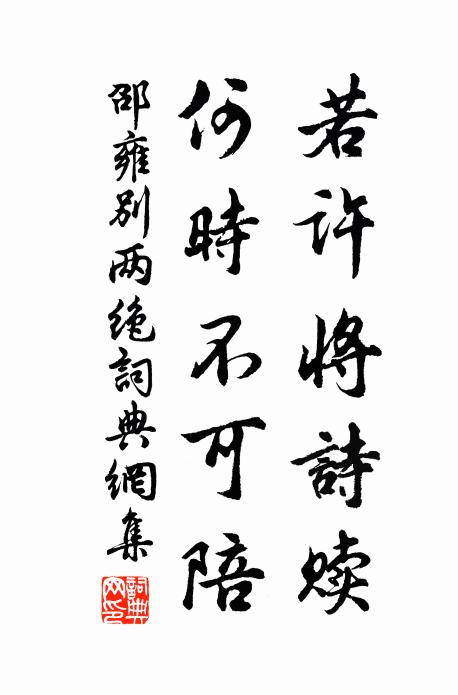 若許將詩贖
何時不可陪
邵雍別两绝詞典網集
詞典网印